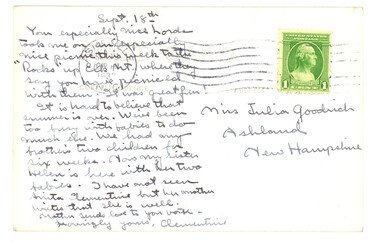 Sept. 18th
Your especially nice
took me on an especially
nice picnic this week to the
Rocks up where they
say you picnicked
with them. It was great fun!
It is hard to believe that
summer is over. We've been
too busy with babies to do
much else. We had my
brother's two children for
six weeks. Now my sister
Helen is here with her two
babies. I have not seen
Anita Clementine but her mother
writes that she is well.
Mother sends love to you both -
Lovingly yours, Clementine
1
1
Miss Julia Goodrich
Ashland
New Hampshire